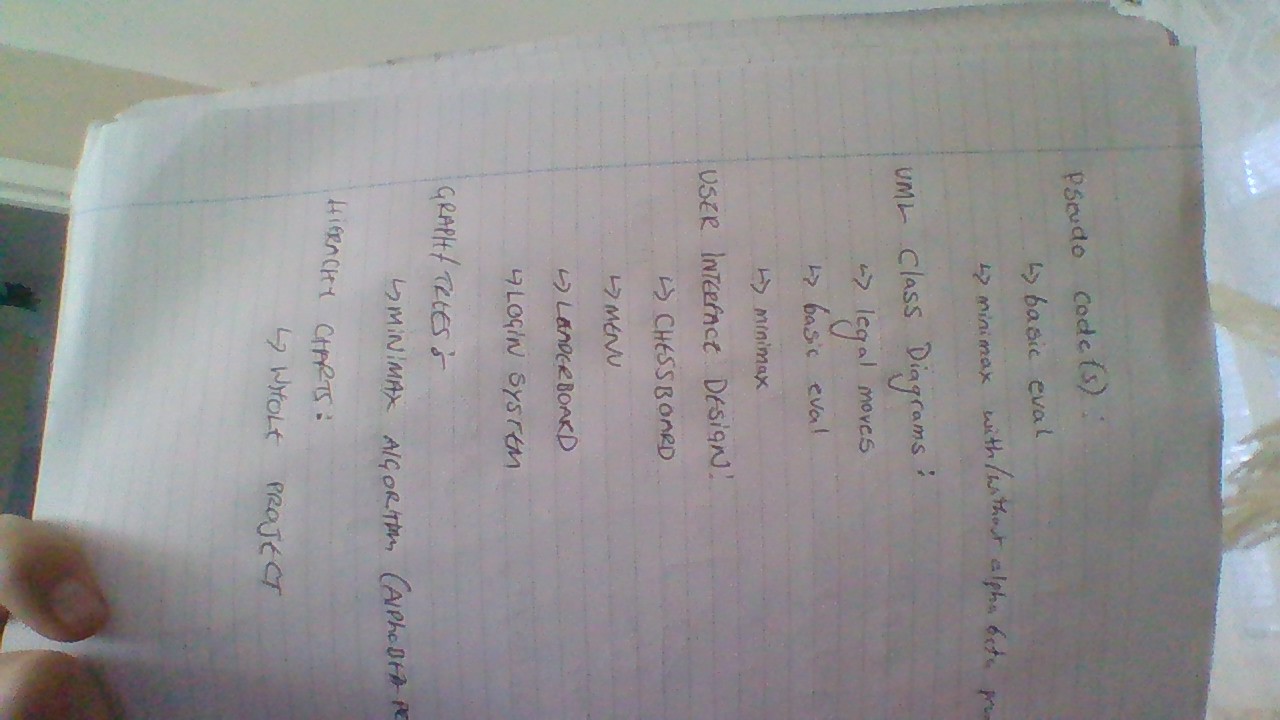 Pseudo code(s):
↳ basic eval
↳ minimax with/without alpha beta
UML Class Diagrams:
↳ legal moves
↳ basic eval
↳ minimax
USER INTERFACE DESIGN:
↳ CHESSBOARD
↳ MENU
↳ LEADERBOARD
↳ LOGIN SYSTEM
GRAPH/TREES:-
↳ MINIMAX AlGORITHM
HIERACHY CHARTS:
↳ WHOLE PROJECT